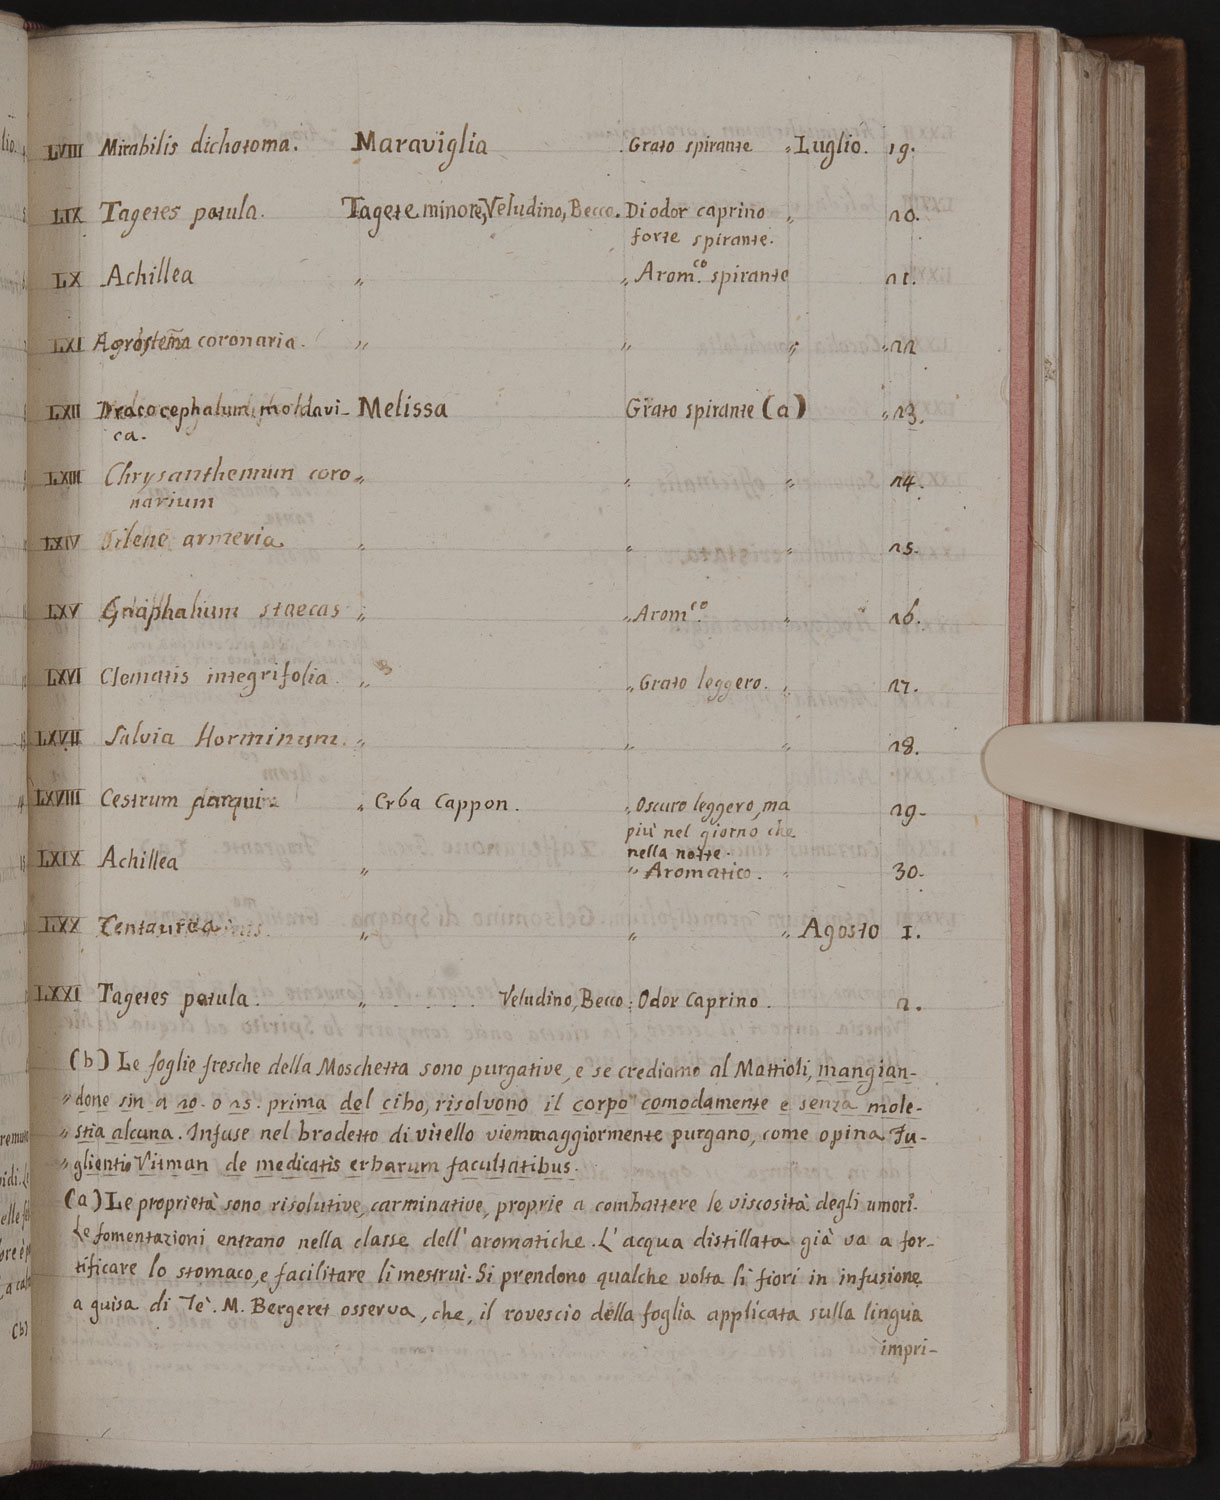 LVIII Mirabilis dichotoma. Maraviglia Grato spirante „ Luglio. 19.
LIX Tagetes patula. Tagete minore, Veludino, Becco. Di odor caprino „ 20.
forte spirante.
LX Achillea „ „ Arom.co spirante 21.
LXI Agrostema coronaria. „ „ „ „ 22
LXII Dracocephalum moldavi- Melissa Grato spirante (a) „ 23.
ca.
LXIII Chrysanthemum coro „ „ „ 24.
narium
LXIV Silene armeria „ „ „ 25.
LXV Gnaphalium staecas „ „ Arom.co „ 26.
LXVI Clematis integrifolia. „ „ Grato leggero. „ 27.
LXVII Salvia Horminum. „ „ „ 28.
LXVIII Cestrum parqui „ Erba Cappon. „ Oscuro leggero, ma 29.
più nel giorno che
nella notte.
LXIX Achillea „ „ Aromatico. „ 30.
LXX Centaurea „ „ „ Agosto 1.
LXXI Tagetes patula. „ . . . . Veludino, Becco: Odor Caprino. 2.
(b) Le foglie fresche della Moschetta sono purgative, e se crediamo al Mattioli, mangian-
„ done sin a 20. o 25. prima del cibo, risolvono il corpo comodamente e senza mole-
„ stia alcuna. Infuse nel brodetto di vitello viemmaggiormente purgano, come opina Fu-
„ glientio Vitman de medicatis erbarum facultatibus.
(a) Le proprietà sono risolutive, carminative, proprie a combattere le viscosità degli umori.
Le fomentazioni entrano nella classe dell' aromatiche. L' acqua distillata già va a for-
tificare lo stomaco, e facilitare li mestrui. Si prendono qualche volta li fiori in infusione
a guisa di Tè. M. Bergeret osserva, che, il rovescio della foglia applicata sulla lingua
impri-